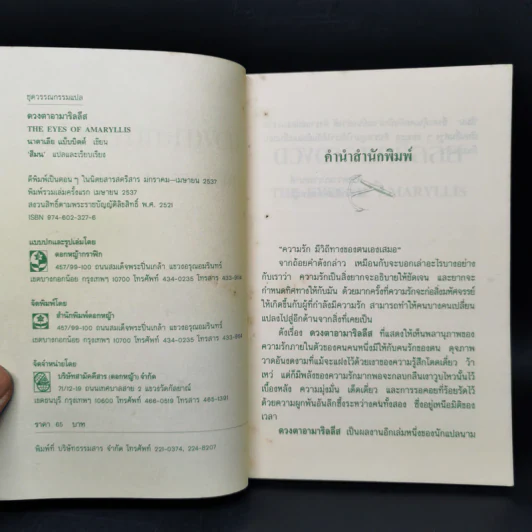 ชุดวรรณกรรมแปล
ดวงตาอามาริลลีส
THE EYES OF AMARYLLIS
นาตาเลีย แบ๊บบิตต์ เขียน
'สีมน' แปลและเรียบเรียง
ตีพิมพ์เป็นตอน ๆ ในนิตยสารสตรีสาร มกราคม-เมษายน 2537
พิมพ์รวมเล่มครั้งแรก เมษายน 2537
สงวนลิขสิทธิ์ตามพระราชบัญญัติลิขสิทธิ์ พ.ศ. 2521
ISBN 974-602-327-6
แบบปกและรูปเล่มโดย
ดอกหญ้ากราฟิก
457/99-100 ถนนสมเด็จพระปิ่นเกล้า แขวงอรุณอมรินทร์
เขตบางกอกน้อย กรุงเทพฯ 10700 โทรศัพท์ 434-0235 โทรสาร
จัดพิมพ์โดย
สำนักพิมพ์ดอกหญ้า
457/99-100 ถนนสมเด็จพระปิ่นเกล้า แขวงอรุณอมรินทร์
เขตบางกอกน้อย กรุงเทพฯ 10700 โทรศัพท์ 434-0235 โทรสาร
จัดจำหน่ายโดย
บริษัทสามัคคีสาร (ดอกหญ้า) จำกัด
71/12-19 ถนนเทศบาลสาย 2 แขวงวัดกัลยาณ์
เขตธนบุรี กรุงเทพฯ 10600 โทรศัพท์ 466-0519 โทรสาร 465-1391
ราคา 65 บาท
พิมพ์ที่ บริษัทธรรมสาร จำกัด โทรศัพท์ 221-0374, 224-8207
คำนำสำนักพิมพ์
"ความรัก มีวิถีทางของตนเองเสมอ"
จากถ้อยคำดังกล่าว เหมือนกับจะบอกเล่าอะไรบางอย่าง
กับเราว่า ความรักเป็นสิ่งยากจะอธิบายให้ชัดเจน และยากจะ
กำหนดทิศทางให้กับมัน ด้วยมากครั้งที่ความรักจะก่อสิ่งมหัศจรรย์
ให้เกิดขึ้นกับผู้ที่กำลังมีความรัก สามารถทำให้คนบางคนเปลี่ยน
แปลงไปสู่อีกด้านจากสิ่งที่เคยเป็น
ดังเรื่อง ดวงตาอามาริลลีส ที่แสดงให้เห็นพลานุภาพของ
ความรักภายในตัวของคนคนหนึ่งมีให้กับคนรักของตน ดุจภาพ
วาดอันงดงามที่แม้จะแฝงไว้ด้วยเงาของความรู้สึกโดดเดี่ยว ว้า
เหว่ แต่ก็มีพลังของความรักมากพอจะกลบกลืนเงาวูบไหวนั้นไว้
เบื้องหลัง ความมุ่งมั่น เด็ดเดี่ยว และการรอคอยที่ร้อยรัดไว้
ด้วยความผูกพันอันลึกซึ้งระหว่างคนทั้งสอง ซึ่งอยู่เหนือมิติของ
เวลา
ดวงตาอามาริลลีส เป็นผลงานอีกเล่มหนึ่งของนักแปลนาม